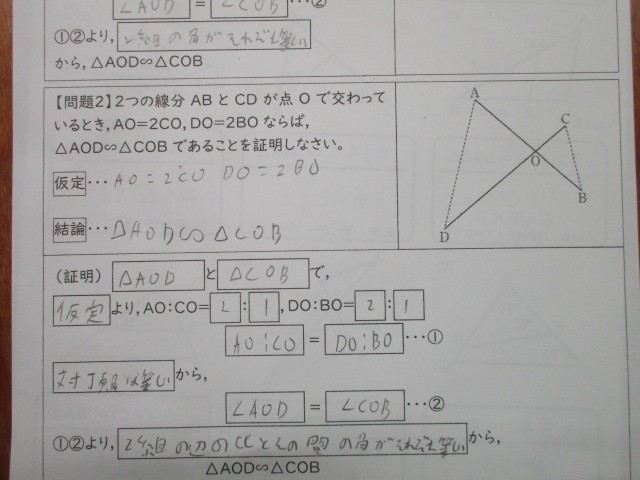 ∠AOD = ∠COB …②
①②より, 2組の角がそれぞれ等しい
から, △AOD∽△COB
【問題2】2つの線分 AB と CD が点 O で交わって
いるとき, AO=2CO, DO=2BO ならば,
△AOD∽△COB であることを証明しなさい。
仮定… AO=2CO DO=2BO
結論… △AOD∽△COB
A
C
O
B
D
(証明) △AOD と △COB で,
仮定 より, AO:CO= 2 : 1 , DO:BO= 2 : 1
AO:CO = DO:BO …①
対頂角は等しい から,
∠AOD = ∠COB …②
①②より, 2組の辺の比とその間の角がそれぞれ等しい から,
△AOD∽△COB